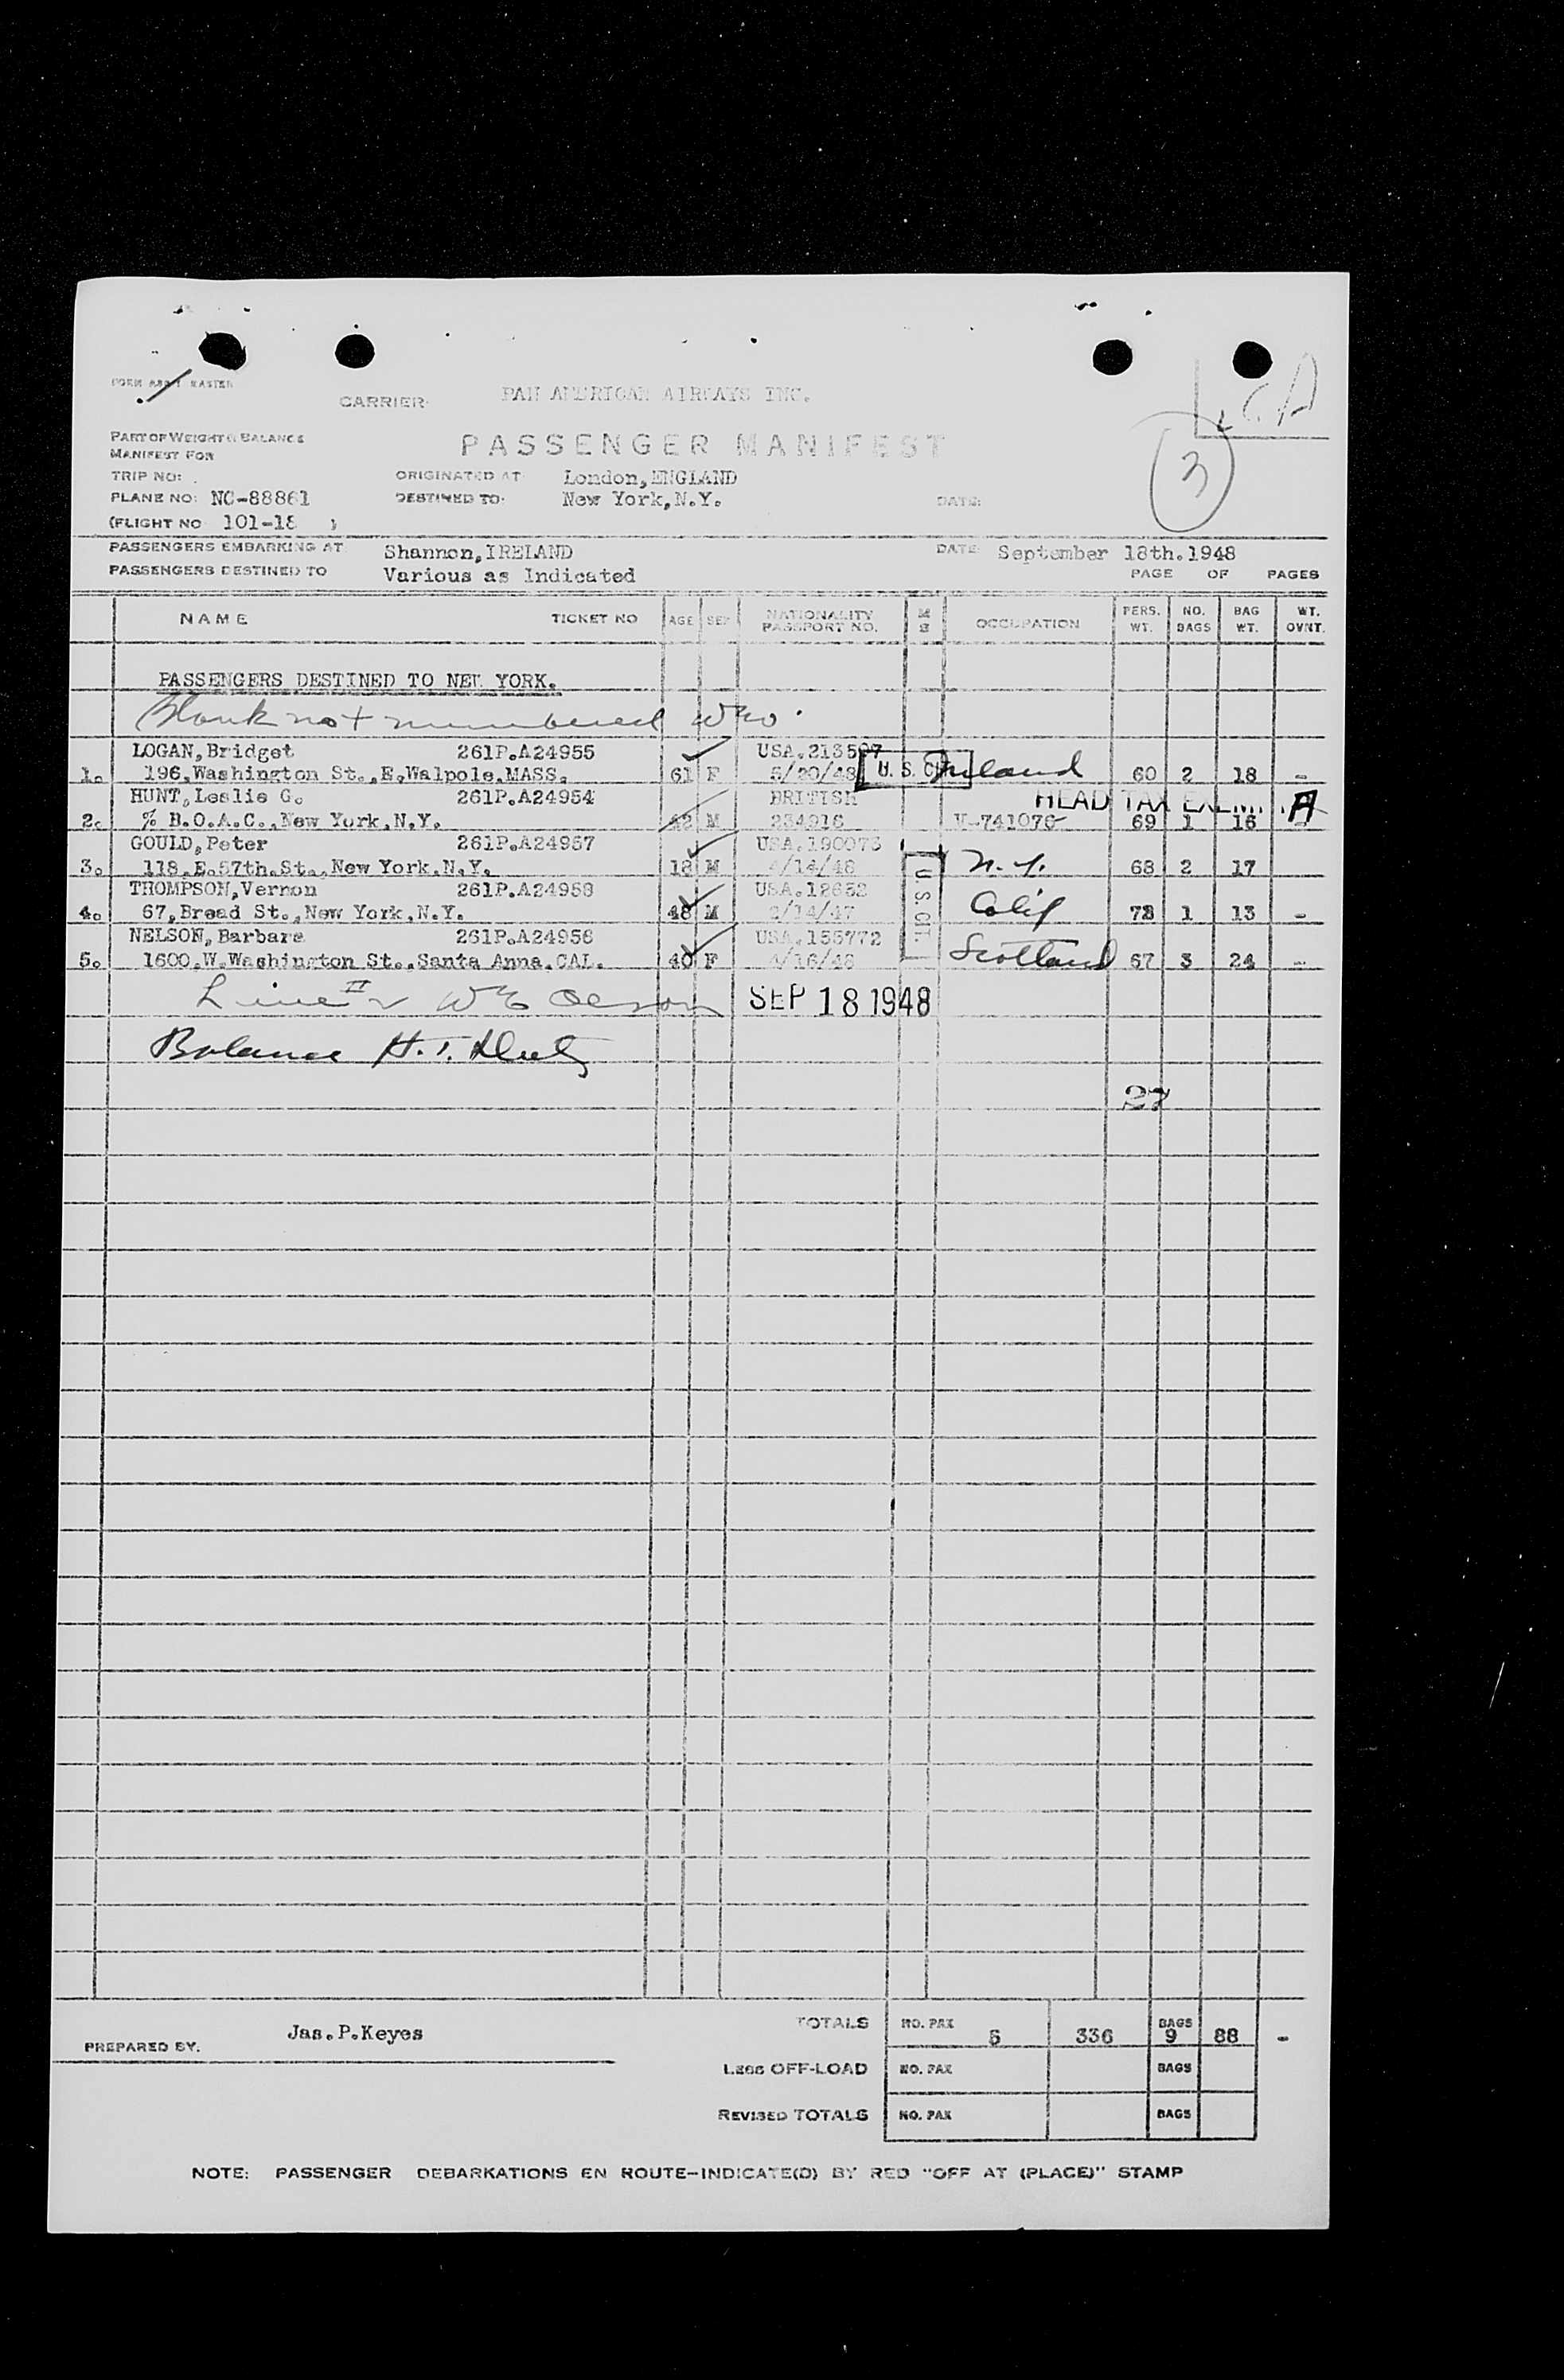 CARRIER: PAN AMERICAN AIRWAYS INC.
PART OF WEIGHT & BALANCE
MANIFEST FOR
PASSENGER MANIFEST
3
TRIP NO:
ORIGINATED AT London, ENGLAND
PLANE NO: NC-88861 DESTINED TO: New York, N.Y. DATE:
(FLIGHT NO 101-18 )
PASSENGERS EMBARKING AT Shannon, IRELAND DATE September 18th. 1948
PASSENGERS DESTINED TO Various as Indicated PAGE OF PAGES
NAME TICKET NO AGE SEX NATIONALITY PASSPORT NO. OCCUPATION PERS. WT. NO. BAGS BAG WT. WT. OVNT.
PASSENGERS DESTINED TO NEW YORK.
Blank not numbered
LOGAN, Bridget 261P.A24955 USA. 213507
1. 196, Washington St., E. Walpole. MASS. 61 F 5/20/48 U. S. CIT. Ireland 60 2 18 -
HUNT, Leslie G. 261P.A24954 BRITISH HEAD TAX EXEMPT A
2. % B.O.A.C., New York, N.Y. 42 M 234916 V-741076 69 1 16
GOULD, Peter 261P.A24957 USA. 190073
3. 118, E. 57th. St., New York. N.Y. 18 M 4/14/48 U. S. CIT. N.Y. 68 2 17
THOMPSON, Vernon 261P.A24958 USA. 12652
4. 67, Broad St., New York, N.Y. 48 M 2/14/47 Calif 72 1 13 -
NELSON, Barbara 261P.A24956 USA. 155772
5. 1600. W. Washington St., Santa Anna. CAL. 40 F 4/16/48 Scotland 67 3 24 -
Line II SEP 18 1948
Balance H.T.
27
PREPARED BY. Jas. P. Keyes
TOTALS NO. PAX 5 336 BAGS 9 88 -
LESS OFF-LOAD NO. PAX BAGS
REVISED TOTALS NO. PAX BAGS
NOTE: PASSENGER DEBARKATIONS EN ROUTE-INDICATE(D) BY RED "OFF AT (PLACE)" STAMP